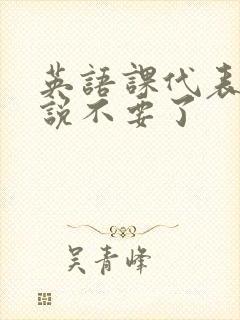 英語課代表
説不要了
吴青峰